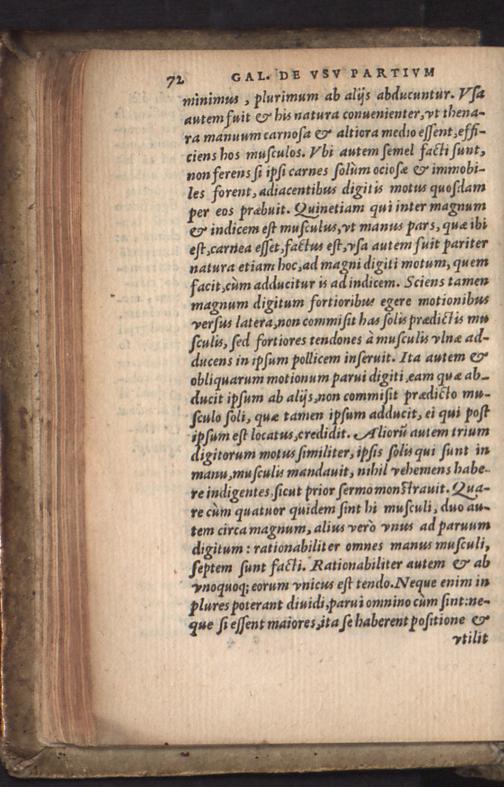 72 GAL. DE VSV PARTIVM
minimus, plurimum ab alijs abducuntur. Vſa
autem fuit & his natura conuenienter, vt thena-
ra manuum carnoſa & altiora medio eſſent, effi-
ciens hos muſculos. Vbi autem ſemel facti ſunt,
non ferens ſi ipſi carnes ſolùm ocioſæ & immobi-
les forent, adiacentibus digitis motus quoſdam
per eos præbuit. Quinetiam qui inter magnum
& indicem eſt muſculus, vt manus pars, quæ ibi
eſt, carnea eſſet, factus eſt, vſa autem fuit pariter
natura etiam hoc, ad magni digiti motum, quem
facit, cùm adducitur is ad indicem. Sciens tamen
magnum digitum fortioribus egere motionibus
verſus latera, non commiſit has ſolis prædictis mu
ſculis, ſed fortiores tendones à muſculis vlnæ ad-
ducens in ipſum pollicem inſeruit. Ita autem &
obliquarum motionum parui digiti, eam quæ ab-
ducit ipſum ab alijs, non commiſit prædicto mu-
ſculo ſoli, quæ tamen ipſum adducit, ei qui poſt
ipſum eſt locatus, credidit. Aliorũ autem trium
digitorum motus ſimiliter, ipſis ſolis qui ſunt in
manu, muſculis mandauit, nihil vehemens habe-
re indigentes, ſicut prior ſermo monſtrauit. Qua-
re cùm quatuor quidem ſint hi muſculi, duo au-
tem circa magnum, alius verò vnus ad paruum
digitum: rationabiliter omnes manus muſculi,
ſeptem ſunt facti. Rationabiliter autem & ab
vnoquoq; eorum vnicus eſt tendo. Neque enim in
plures poterant diuidi, parui omnino cùm ſint: ne-
que ſi eſſent maiores, ita ſe haberent poſitione &
vtilit